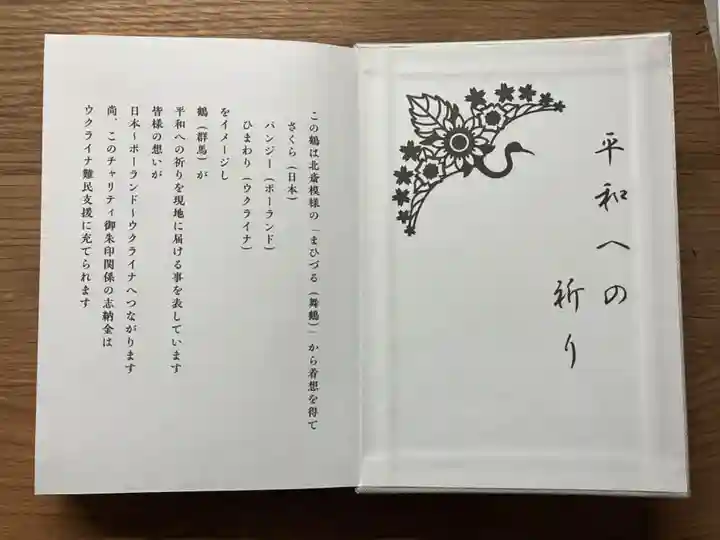 この鶴は北斎模様の「まひづる（舞鶴）」から着想を得て
さくら（日本）
パンジー（ポーランド）
ひまわり（ウクライナ）
をイメージし
鶴（群馬）が
平和への祈りを現地に届ける事を表しています
皆様の想いが
日本～ポーランド～ウクライナへつながります
尚、このチャリティ御朱印関係の志納金は
ウクライナ難民支援に充てられます
平和への
祈り